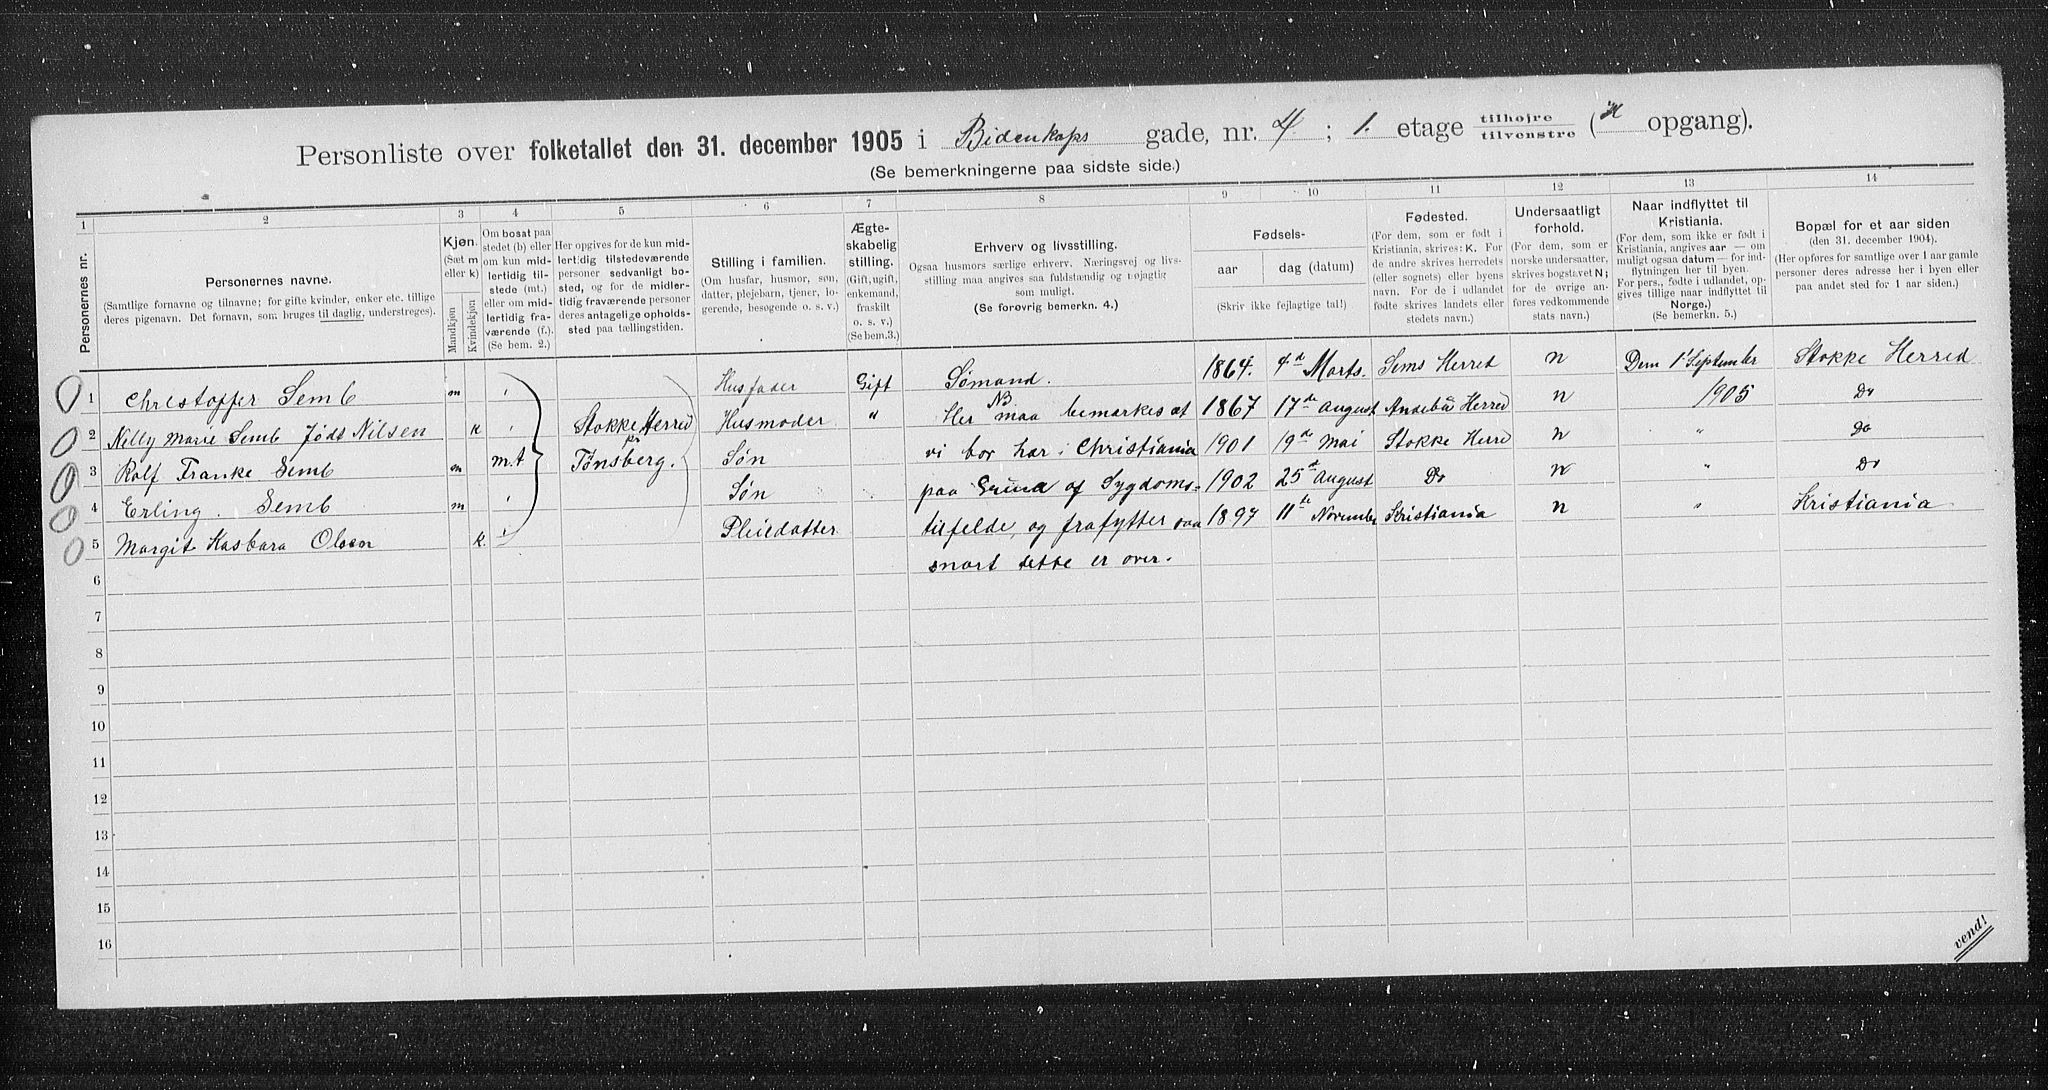 Personliste over folketallet den 31. december 1905 i Bidenkaps gade, nr. 4. ; 1. etage tilhøjre tilvenstre ( opgang).
(Se bemerkningerne paa sidste side.)
1 2 3 4 5 6 7 8 9 10 11 12 13 14
Personernes nr.
Personernes navne.
(Samtlige fornavne og tilnavne; for gifte kvinder, enker etc. tillige
deres pigenavn. Det fornavn, som bruges til daglig, understreges).
Kjøn.
(Sæt m
eller k)
Mandkjøn
Kvindekjøn
Om bosat paa
stedet (b) eller
om kun mid-
lertidig til-
stede (mt.)
eller om mid-
lertidig fra-
værende (f.).
(Se bem. 2.)
Her opgives for de kun mid-
lertidig tilstedeværende
personer sedvanligt bo-
sted, og for de midler-
tidig fraværende personer
deres antagelige opholds-
sted paa tællingstiden.
Stilling i familien.
(Om husfar, husmor, søn,
datter, plejebarn, tjener, lo-
gerende, besøgende o. s. v.)
Ægte-
skabelig
stilling.
(Gift, ugift,
enkemand,
fraskilt
o. s. v.)
(Se bem.3.)
Erhverv og livsstilling.
Ogsaa husmors særlige erhverv. Næringsvej og livs-
stilling maa angives saa fuldstændig og nøjagtig
som muligt.
(Se forøvrig bemerkn. 4.)
Fødsels-
aar
dag (datum)
(Skriv ikke fejlagtige tal!)
Fødested.
(For dem, som er født i
Kristiania, skrives: K. For
de andre skrives herredets
(eller sognets) eller byens
navn. For de i udlandet
fødte skrives landets eller
stedets navn.)
Undersaatligt
forhold.
(For dem, som er
norske undersaatter,
skrives bogstavet N;
for de øvrige an-
føres vedkommende
stats navn.)
Naar indflyttet til
Kristiania.
(For dem, som ikke er født i
Kristiania, angives aar — om
muligt ogsaa datum — for ind-
flytningen her til byen.
For pers., fødte i udlandet, op-
gives tillige naar indflyttet til
Norge.)
(Se bemerkn. 5.)
Bopæl for et aar siden
(den 31. december 1904).
(Her opføres for samtlige over 1 aar gamle
personer deres adresse her i byen eller
paa andet sted for 1 aar siden.)
1 Christoffer Semb m Husfader Gift Sømand. 1864. 4d Marts. Sems Herred n Dem 1' September Stokke Herred
2 Nelly Marie Semb Jødt Nilsen k Stokke Herred Husmoder " Her NB maa bemærkes at 1867 17de August Andebu Herred n 1905 Do
3 Rolf Franke Semb m m.t pr Tønsberg. Søn vi bor her i Christiania 1901 19de Mai Stokke Herred n " Do
4 Erling. Semb m Søn paa Grund af Sygdoms- 1902 25d August Do n " Do
5 Margit Kasbara Olsen k. Pleiedatter tilfelde, og frafytter saa 1897 11te November Kristiania n " Kristiania
snart dette er over.
6
7
8
9
10
11
12
13
14
15
16
vend!